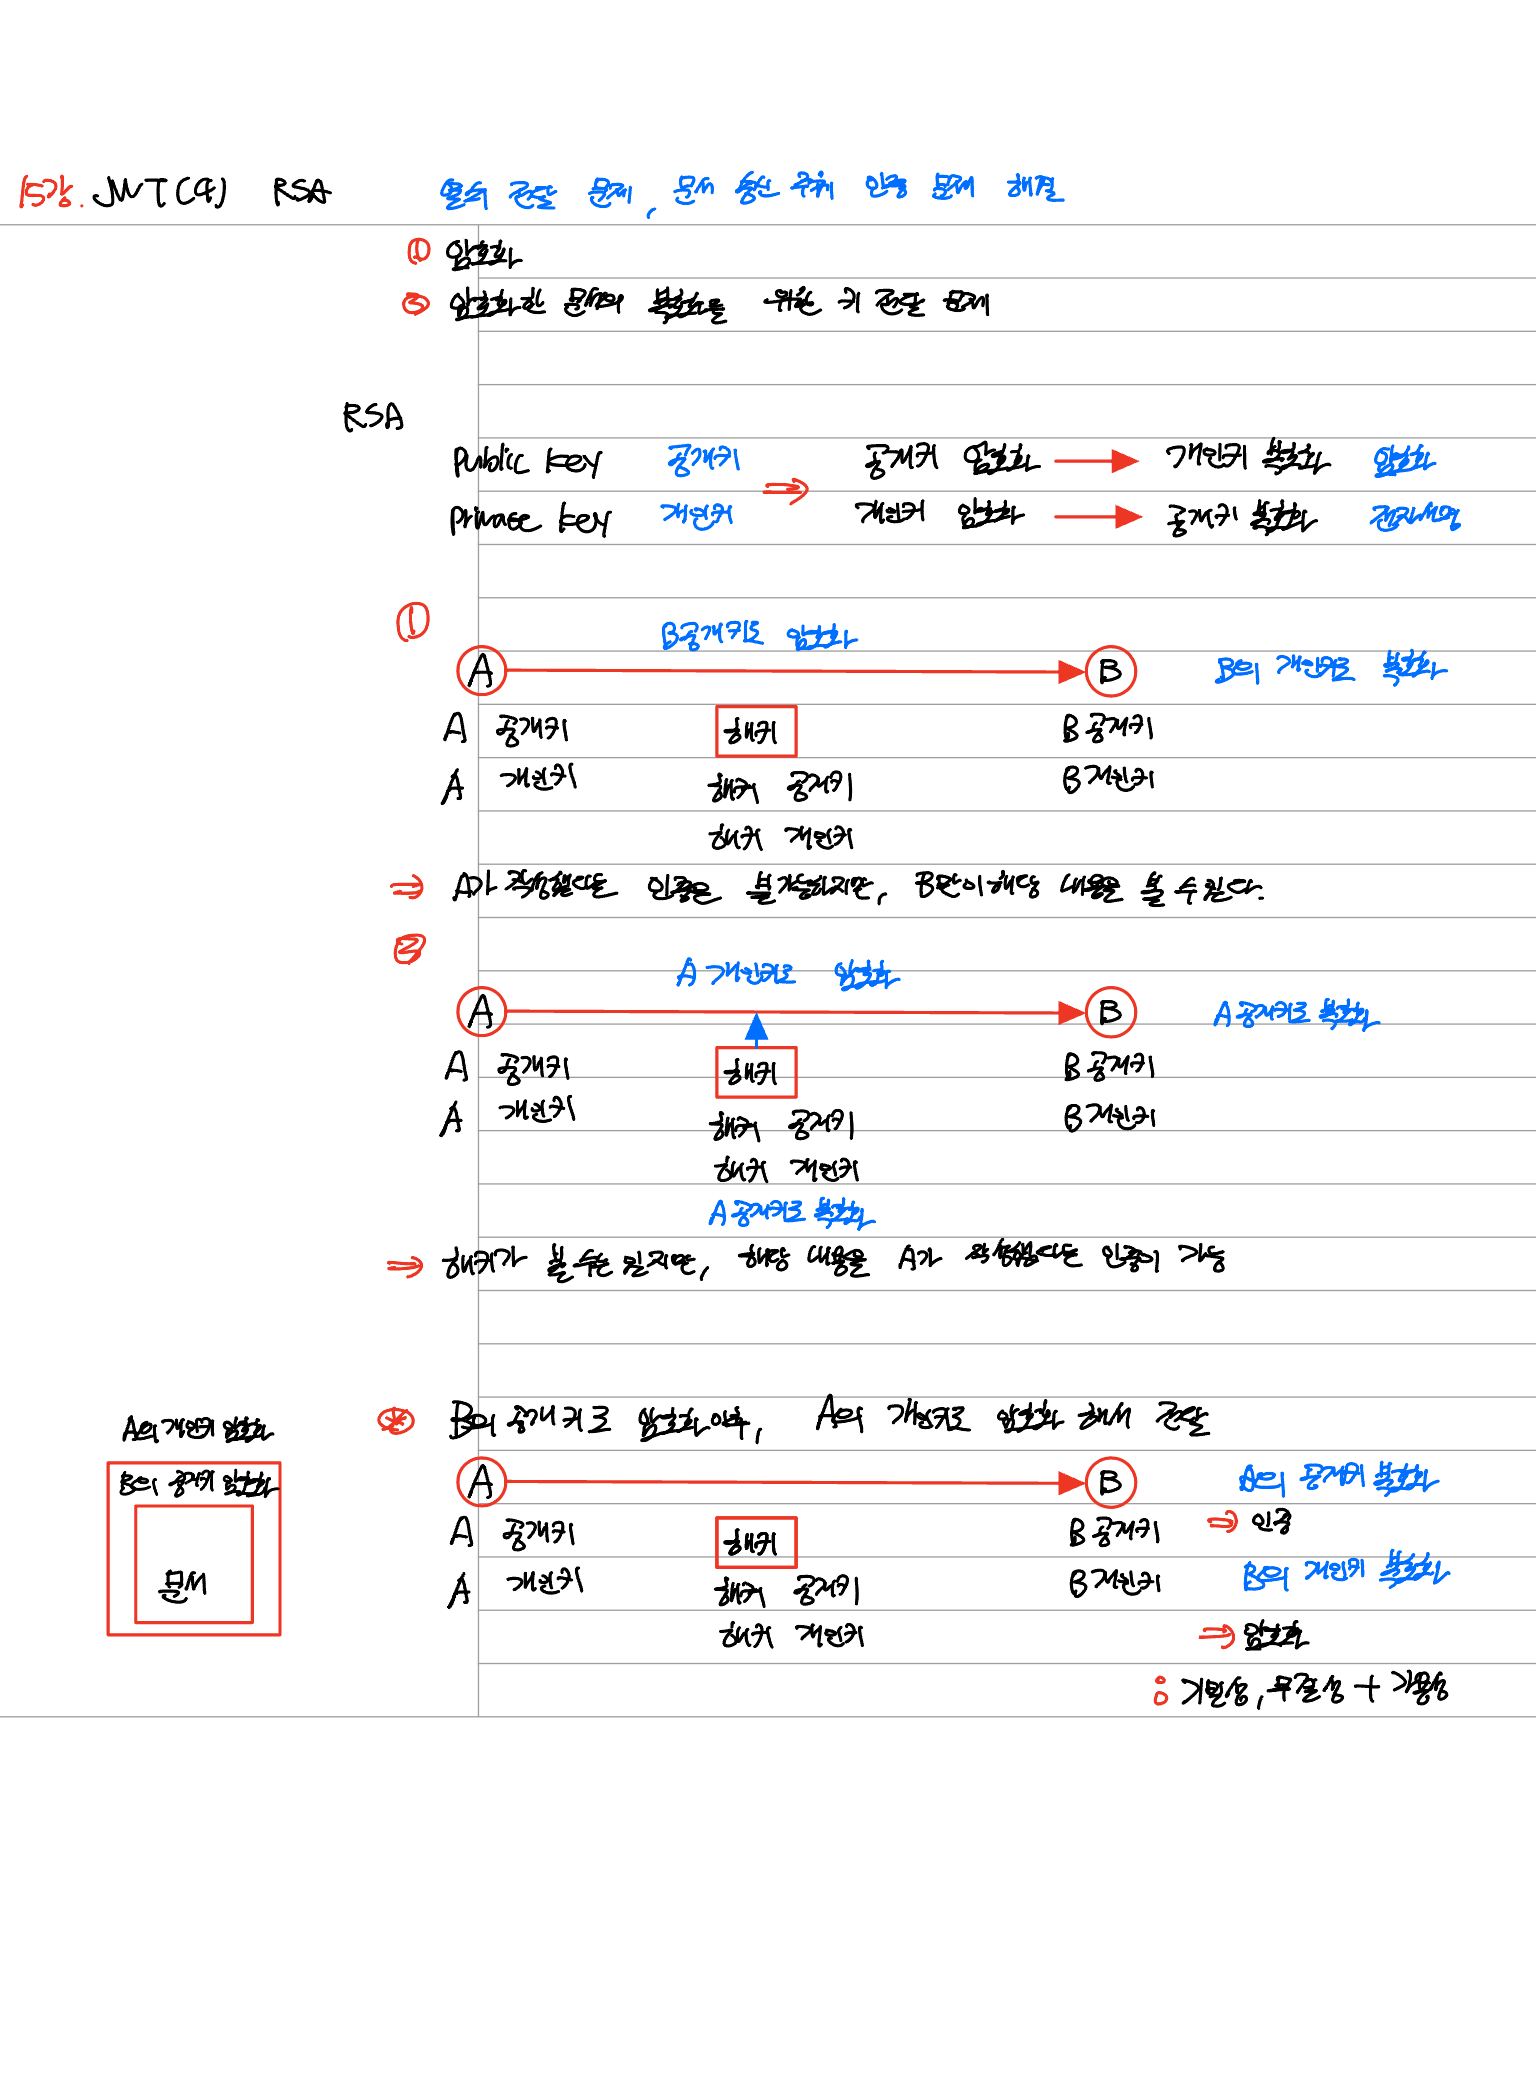 15강. JWT(4) RSA 열쇠 전달 문제, 문서 송신 주체 인증 문제 해결
① 암호화
② 암호화한 문서의 복호화를 위한 키 전달 문제
RSA
Public key 공개키 ⇒ 공개키 암호화 → 개인키 복호화 암호화
Private key 개인키 개인키 암호화 → 공개키 복호화 전자서명
①
B공개키로 암호화
A B B의 개인키로 복호화
A 공개키 해커 B 공개키
A 개인키 해커 공개키 B 개인키
해커 개인키
⇒ A가 작성했다는 인증은 불가능하지만, B만이 해당 내용을 볼 수 있다.
②
A 개인키로 암호화
A B A 공개키로 복호화
A 공개키 해커 B 공개키
A 개인키 해커 공개키 B 개인키
해커 개인키
A 공개키로 복호화
⇒ 해커가 볼 수는 있지만, 해당 내용을 A가 작성했다는 인증이 가능
⊛ B의 공개키로 암호화 이후, A의 개인키로 암호화 해서 전달
A의 개인키 암호화
B의 공개키 암호화
문서
A B A의 공개키 복호화
A 공개키 해커 B 공개키 ⇒ 인증
A 개인키 해커 공개키 B 개인키 B의 개인키 복호화
해커 개인키 ⇒ 암호화
: 기밀성, 무결성 + 가용성